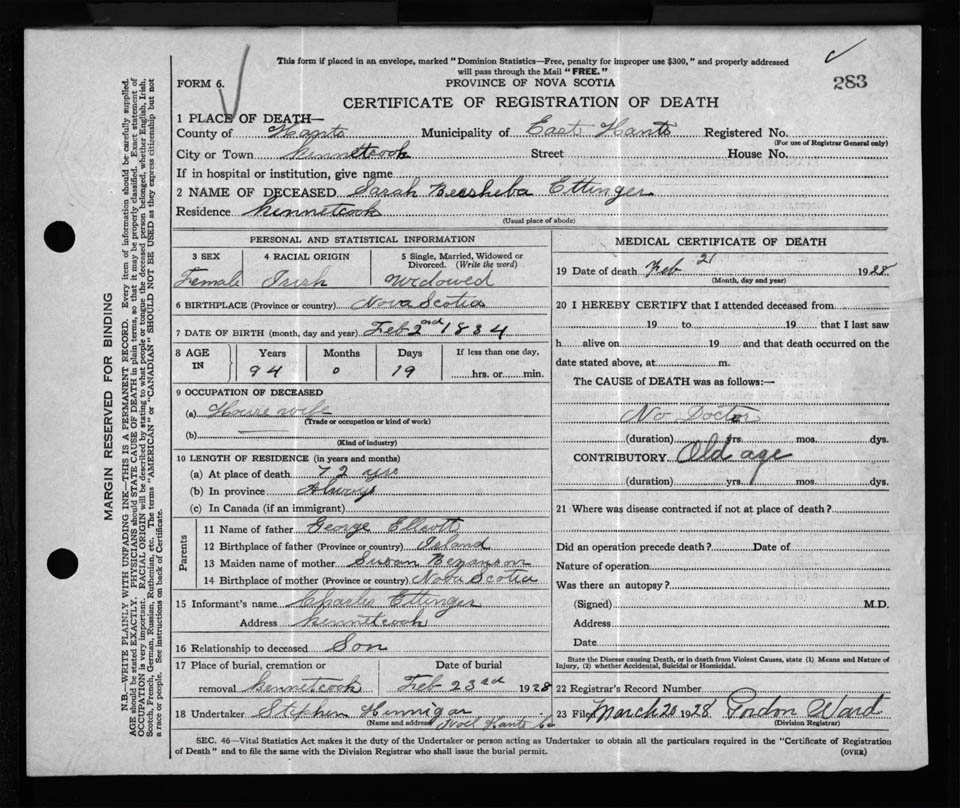 This form if placed in an envelope, marked "Dominion Statistics—Free, penalty for improper use $300," and properly addressed
will pass through the Mail "FREE."
283
FORM 6.
PROVINCE OF NOVA SCOTIA
CERTIFICATE OF REGISTRATION OF DEATH
1 PLACE OF DEATH—
County of Hants Municipality of East Hants Registered No.
(For use of Registrar General only)
City or Town Kennetcook Street House No.
If in hospital or institution, give name
2 NAME OF DECEASED Sarah Beesheba Ettinger
Residence Kennetcook
(Usual place of abode)
PERSONAL AND STATISTICAL INFORMATION
3 SEX 4 RACIAL ORIGIN 5 Single, Married, Widowed or Divorced. (Write the word)
Female Irish Widowed
6 BIRTHPLACE (Province or country) Nova Scotia
7 DATE OF BIRTH (month, day and year) Feb 2nd 1834
8 AGE IN Years Months Days If less than one day,
94 0 19 hrs. or min.
9 OCCUPATION OF DECEASED
(a) House wife
(Trade or occupation or kind of work)
(b)
(Kind of industry)
10 LENGTH OF RESIDENCE (in years and months)
(a) At place of death 72 yrs
(b) In province Always
(c) In Canada (if an immigrant)
Parents
11 Name of father George Ellcott
12 Birthplace of father (Province or country) Island
13 Maiden name of mother Susan Bezanson
14 Birthplace of mother (Province or country) Nova Scotia
15 Informant's name Charles Ettinger
Address Kennetcook
16 Relationship to deceased Son
17 Place of burial, cremation or Date of burial
removal Kennetcook Feb 23rd 1928
18 Undertaker Stephen Hennigar
(Name and address) Noel Hants Co
MEDICAL CERTIFICATE OF DEATH
19 Date of death Feb 21 1928
(Month, day and year)
20 I HEREBY CERTIFY that I attended deceased from
19 to 19 that I last saw
h alive on 19 and that death occurred on the
date stated above, at m.
The CAUSE of DEATH was as follows:—
No Doctor
(duration) yrs. mos. dys.
CONTRIBUTORY Old age
(duration) yrs. mos. dys.
21 Where was disease contracted if not at place of death?
Did an operation precede death? Date of
Nature of operation
Was there an autopsy?
(Signed) M.D.
Address
Date
State the Disease causing Death, or in death from Violent Causes, state (1) Means and Nature of
Injury, (2) whether Accidental, Suicidal or Homicidal.
22 Registrar's Record Number
23 Filed March 20 1928 Gordon Ward
(Division Registrar)
SEC. 46—Vital Statistics Act makes it the duty of the Undertaker or person acting as Undertaker to obtain all the particulars required in the "Certificate of Registration
of Death" and to file the same with the Division Registrar who shall issue the burial permit.
(OVER)
MARGIN RESERVED FOR BINDING
N.B.—WRITE PLAINLY WITH UNFADING INK—THIS IS A PERMANENT RECORD. Every item of information should be carefully supplied.
AGE should be stated EXACTLY. PHYSICIANS should STATE CAUSE OF DEATH in plain terms, so that it may be properly classified. Exact statement of
OCCUPATION is very important. RACIAL ORIGIN will be described by stating to what people or tongue the deceased person belonged, whether English, Irish,
Scotch, French, German, Russian, Ruthenian, etc. The terms "AMERICAN" or "CANADIAN" SHOULD NOT BE USED as they express citizenship but not
a race or people. See instructions on back of Certificate.